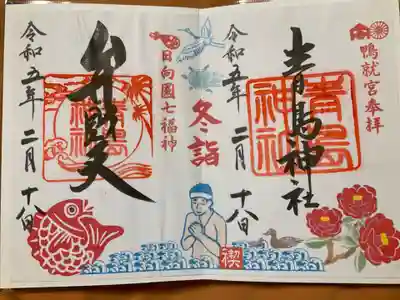 鴨就宮奉拝
青島神社
青島
神社
令和五年 二月 十八日
冬詣
日向國七福神
禊
弁財天
青島
神社
令和五年 二月 十八日